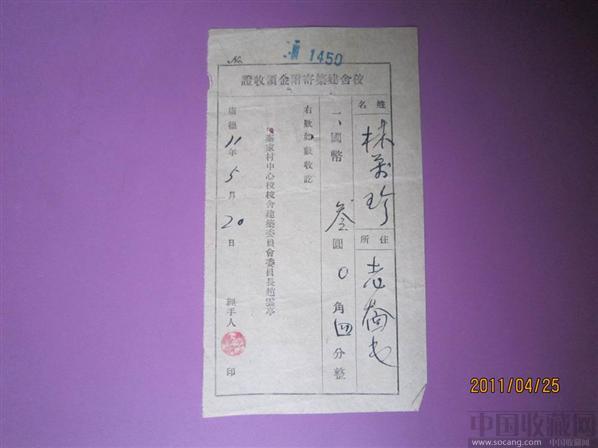 No. 1450
校舍建築寄附金領收證
姓名 林万珍 住所
一、國幣 叁圓0角四分整
右款如數收訖
家村中心校校舍建築委員會委員長趙雲亭
康德11年5月20日 經手人 印
2011/04/25
中国收藏网
www.socang.com